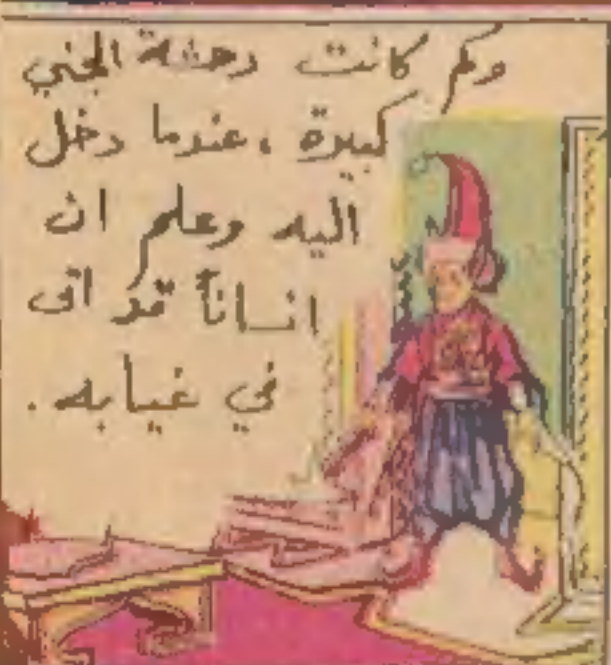 وكم كانت دهشة الجني
كبيرة ، عندما دخل
اليه وعلم ان
انساناً قد اتى
في غيابه .